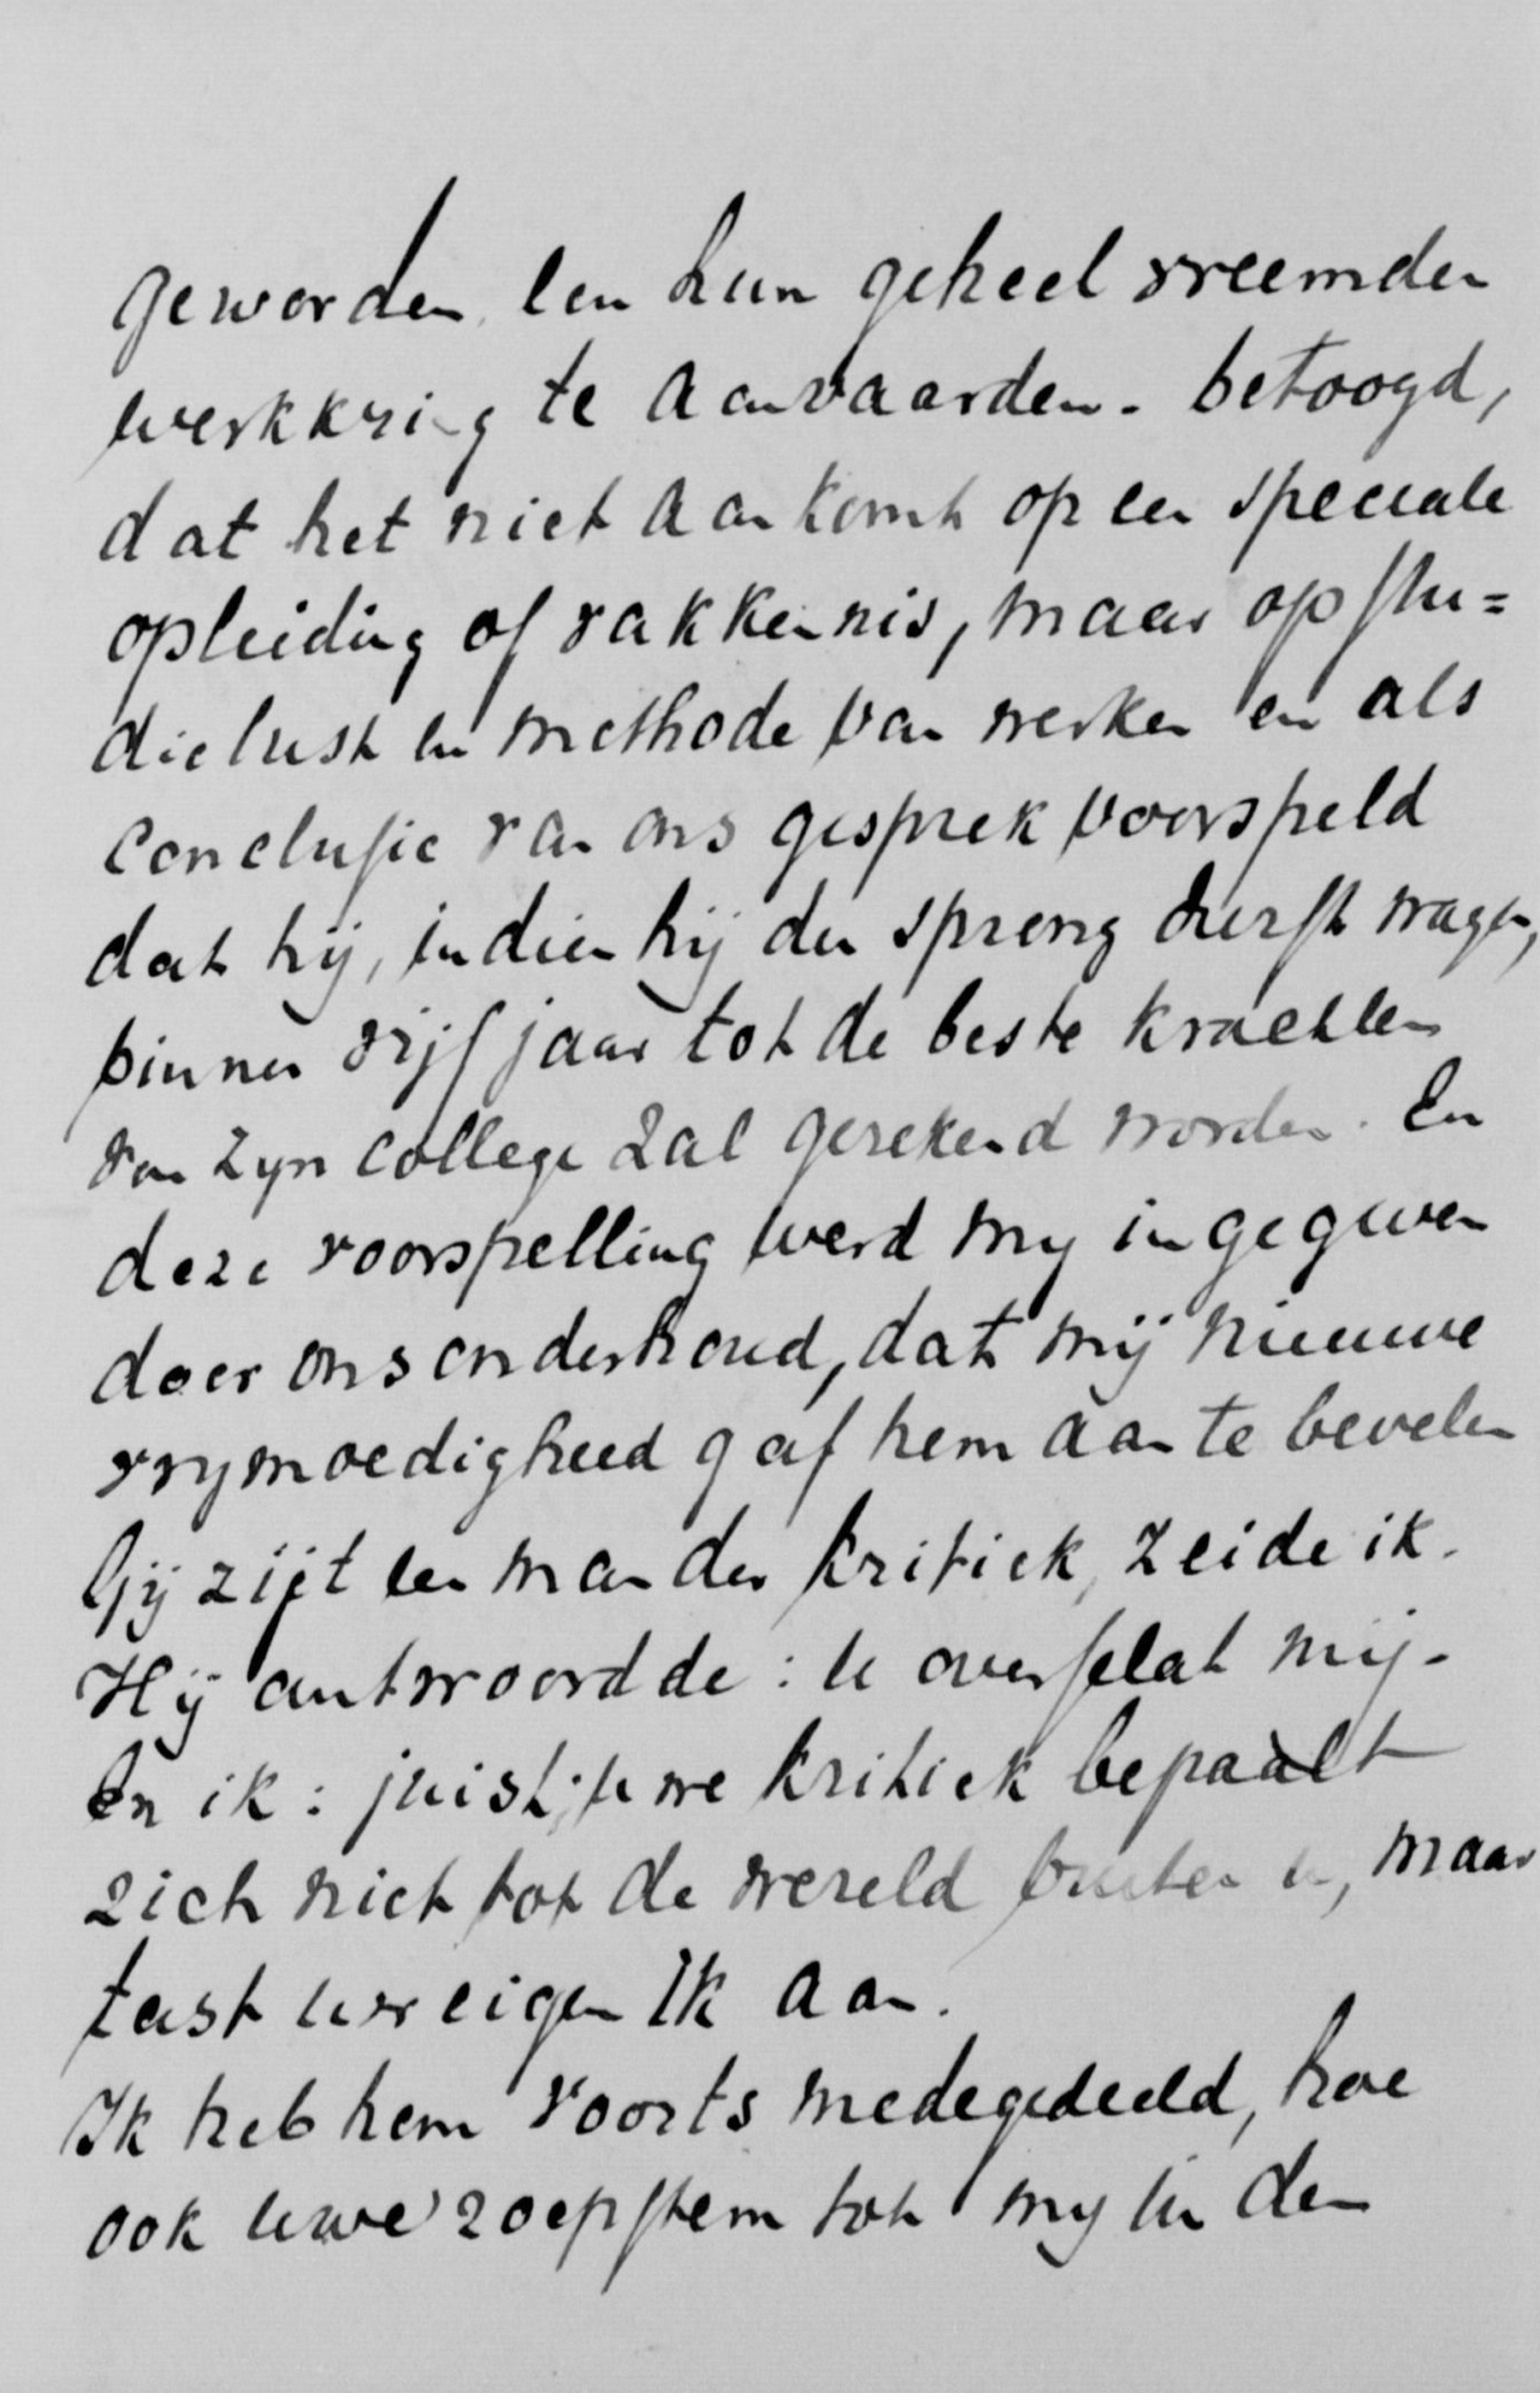 geworden een hun geheel vreemden
werkkring te aanvaarden. betoogd,
dat het niet aankomt op een speciale
opleiding of vakkennis, maar op stu=
dielust en methode van werken en als
conclusie van ons gesprek voorspeld
dat hij, indien hij den sprong durft wagen,
binnen vijf jaar tot de beste krachten
van zyn college zal gerekend worden. En
deze voorspelling werd my ingegeven
door ons onderhoud, dat mij nieuwe
vrymoedigheid gaf hem aan te bevelen
Gij zijt een man der kritiek, zeide ik.
Hij antwoordde: U overschat mij.
En ik: juist; uwe kritiek bepaalt
zich niet tot de wereld buiten u, maar
tast uw eigen Ik aan.
Ik heb hem voorts medegedeeld, hoe
ook uwe roepstem tot my in den